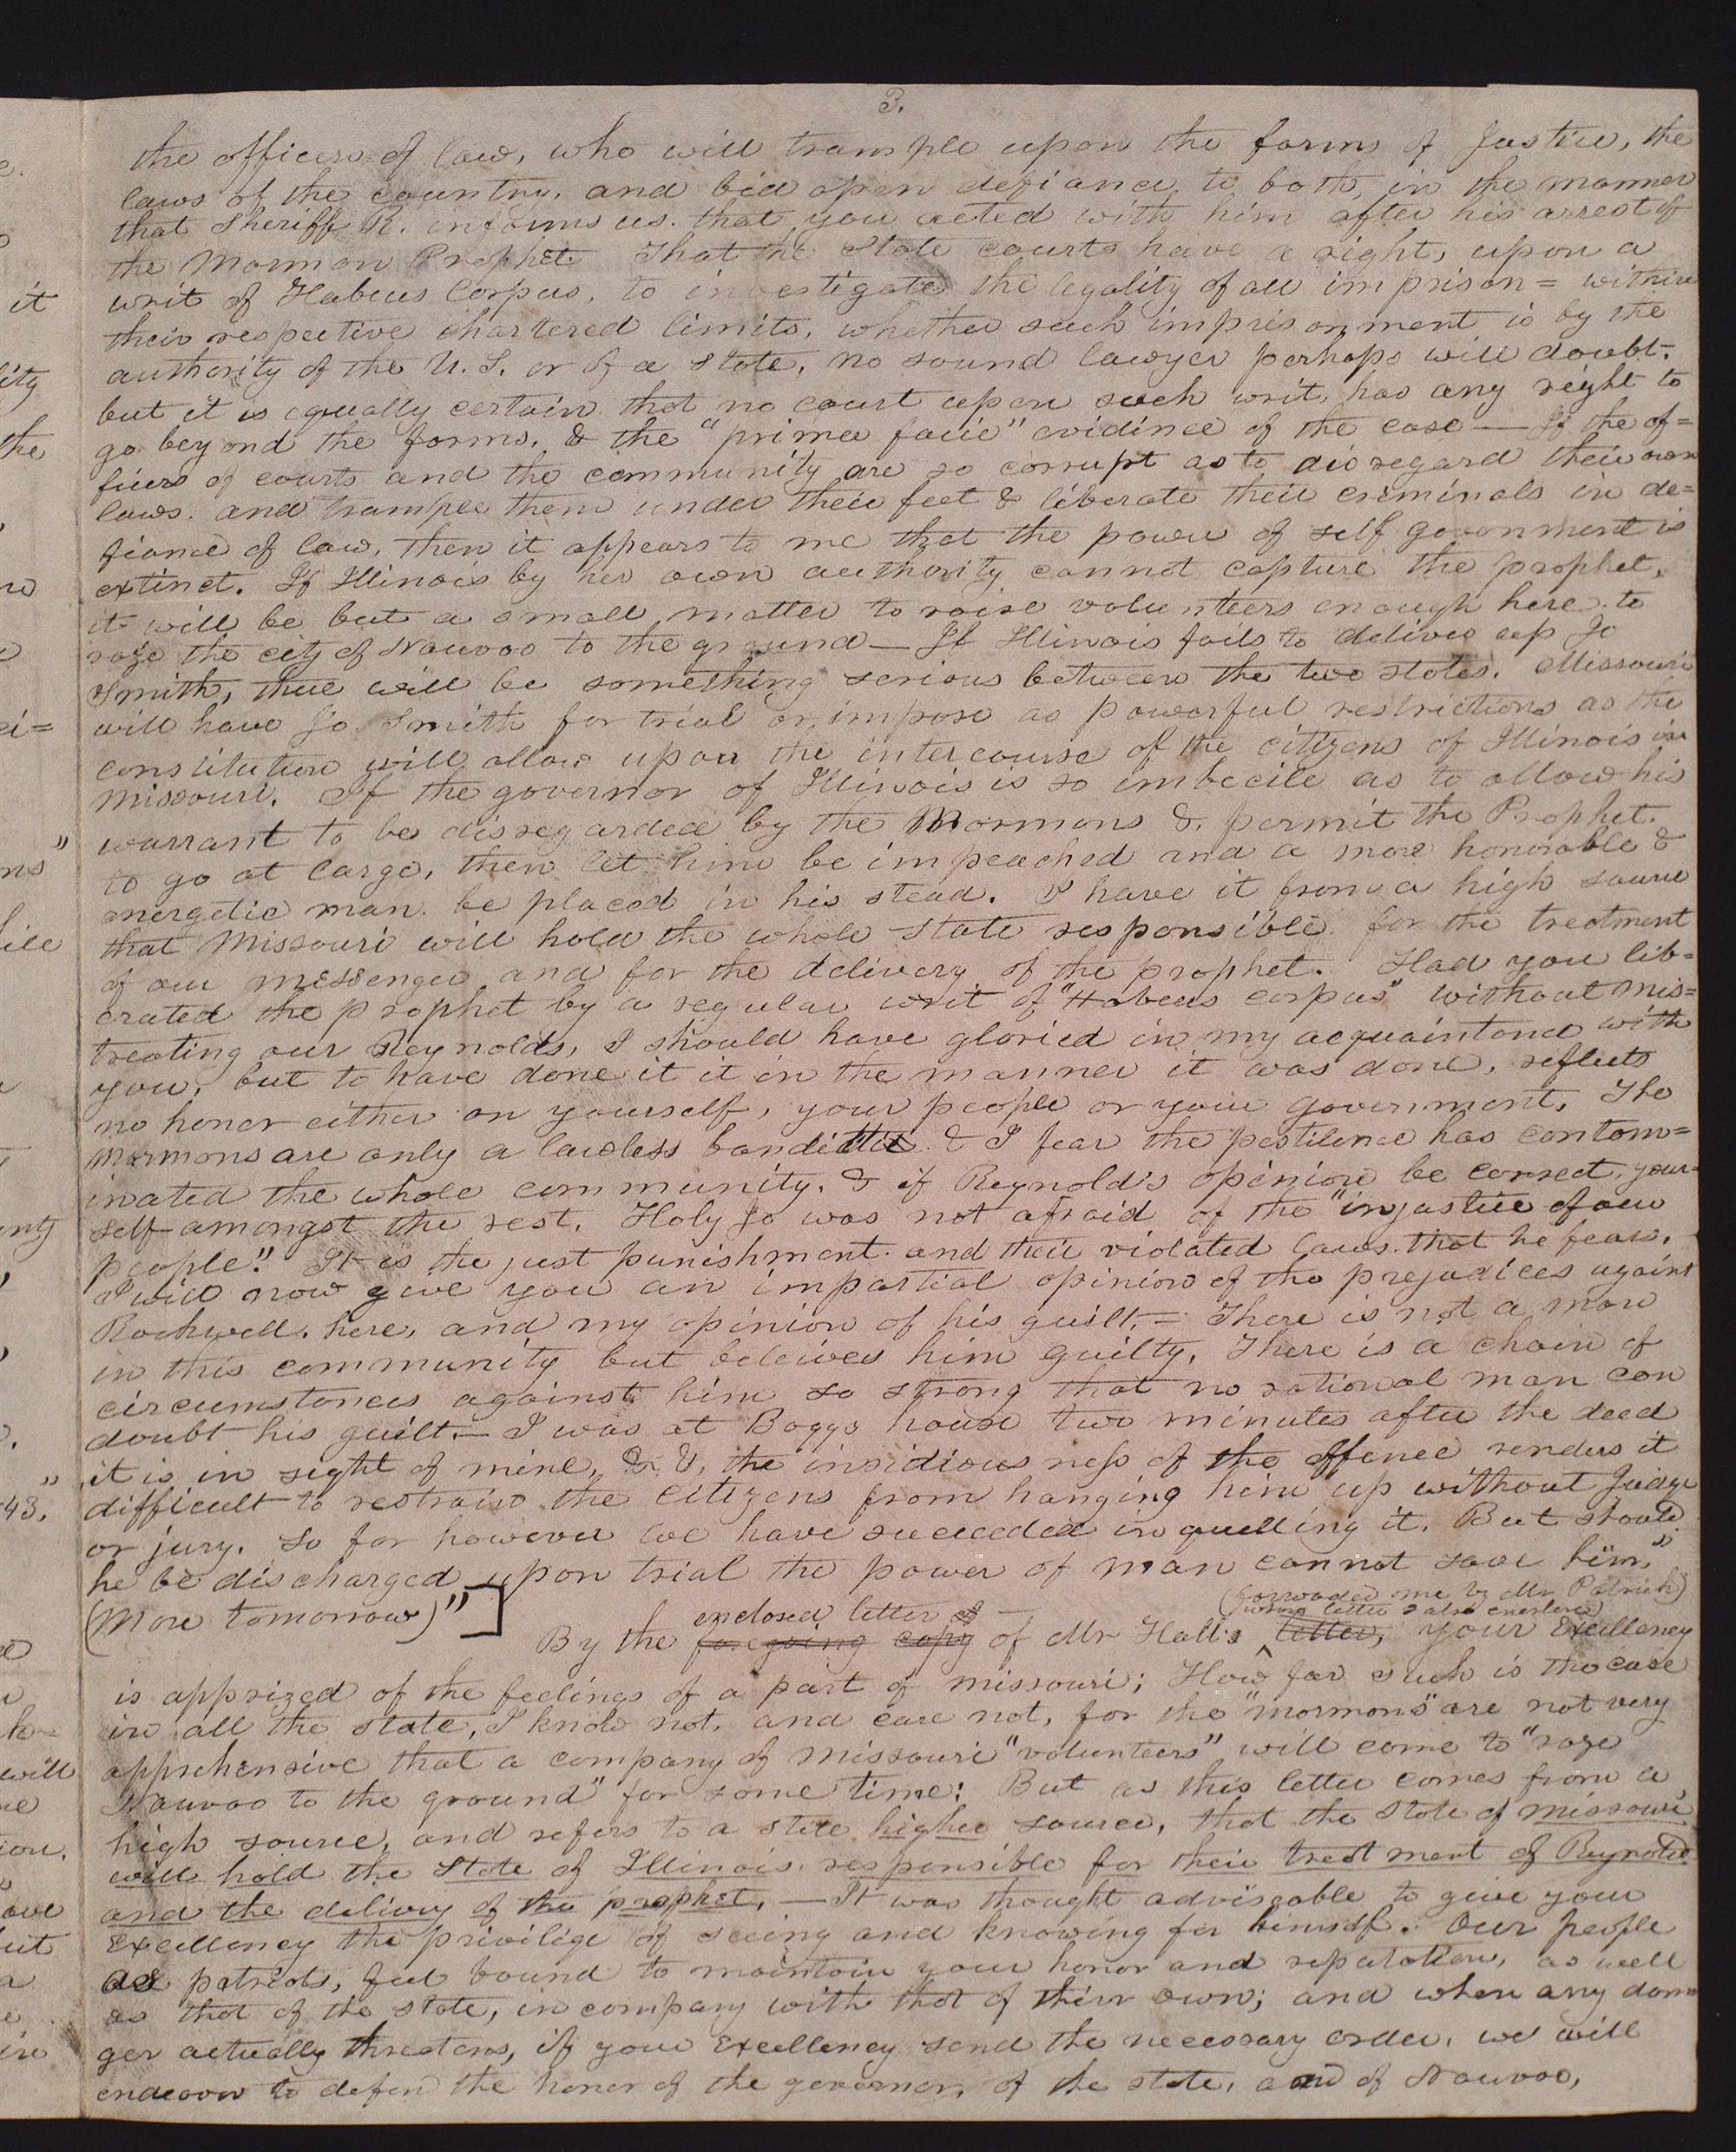 3.
the officers of law, who will trample upon the forms of Justice, the
laws of the country, and bid open defiance to both, in the manner
that Sheriff R. informs us. that you acted with him after his arrest of
the Mormon Prophet. That the State courts have a right, upon a
writ of Habeus Corpus, to investigate the legality of all imprison= within
their respective chartered limits, whether such imprisonment is by the
authority of the U. S. or of a state, no sound lawyer perhaps will doubt.
but it is equally certain that no court upon such writ, has any right to
go beyond the forms, & the "prima facie" evidince of the case — If the of=
ficers of courts and the community are so corrupt as to disregard their own
laws. and trample them under their feet & liberate their criminals in de=
fiance of law, then it appears to me that the power of self government is
extinct. If Illinois by her own authority cannot capture the prophet,
it will be but a small matter to raise volunteers enough here to
raze the city of Nauvoo to the ground — If Illinois fails to deliver up Jo
Smith, there will be something serious between the two states. Missouri
will have Jo. Smith for trial or impose as powerful restrictions as the
constitution will allow upon the intercourse of the citizens of Illinois in
Missouri. If the governor of Illinois is so imbecile as to allow his
warrant to be disregarded by the Mormons & permit the Prophet
to go at large, then let him be impeached and a more honorable &
energetic man be placed in his stead. I have it from a high source
that Missouri will hold the whole state responsible for the treatment
of our messenger and for the delivery of the prophet. Had you lib=
erated the prophet by a regular writ of "Habeus corpus" without mis=
treating our Reynolds, I should have gloried in my acquaintance with
you, but to have done it it in the manner it was done, reflects
no honor either on yourself, your people or your government. The
Mormons are only a lawless banditti & I fear the pestilence has contam=
inated the whole community. & if Reynold's opinion be correct, your=
self amongst the rest. Holy Jo was not afraid of the "injustice of our
people." It is the just punishment and their violated laws that he fears.
I will now give you an impartial opinion of the prejudices against
Rockwell. here, and my opinion of his guilt.= There is not a man
in this community but beleives him guilty. There is a chain of
circumstances against him so strong that no rational man can
doubt his guilt.— I was at Boggs house two minutes after the deed
it is in sight of mine, & &, the insidiousness of the offence renders it
difficult to restrain the citizens from hanging him up without Judge
or jury. So far however we have succeeded in quelling it. But should
he be discharged upon trial the power of man cannot save him."
(More tomorrow)"]
By the enclosed letter of — foregoing copy of Mr Hall's (forwaded me by Mr Patrick) (whose letter is also enclosed) letter, your Excellency
is apprized of the feelings of a part of missouri; How far such is the case
in all the state, I know not, and care not, for the "mormons" are not very
apprehensive that a company of missouri "volunteers" will come to "raze
Nauvoo to the ground" for some time: But as this letter comes from a
high source, and refers to a still higher source, that the State of missouri
will hold the State of Illinois responsible for their treatment of Reynolds
and the delivery of the prophet, — It was thought adviseable to give your
Excellency the privilige of seeing and knowing for himself. Our people
as patriots, feel bound to maintain your honor and reputation, as well
as that of the state, in company with that of their own; and when any dan=
ger actually threatens, if your Excellency send the necessary order, we will
endeavor to defend the honor of the governor, of the state, and of Nauvoo,